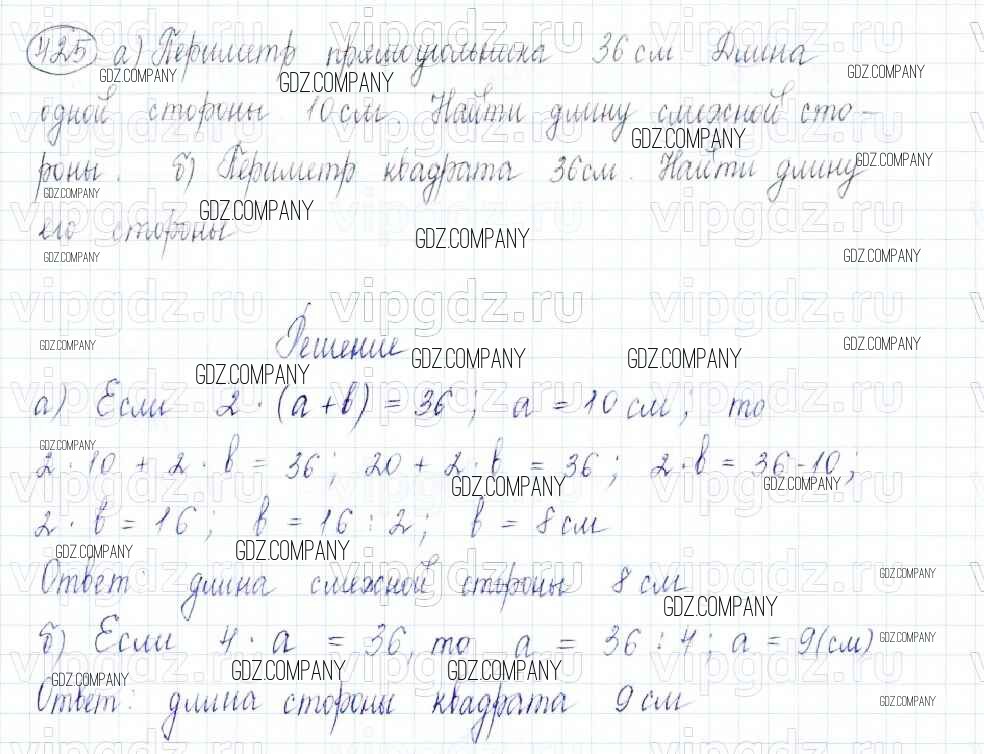 425 а) Периметр прямоугольника 36 см Длина
одной стороны 10 см. Найти длину смежной сто-
роны. б) Периметр квадрата 36 см. Найти длину
его стороны
Решение
а) Если 2 · (a + b) = 36; a = 10 см; то
2 · 10 + 2 · b = 36; 20 + 2 · b = 36; 2 · b = 36 - 10;
2 · b = 16; b = 16 : 2; b = 8 см
Ответ: длина смежной стороны 8 см
б) Если 4 · a = 36, то a = 36 : 4; a = 9 (см)
Ответ: длина стороны квадрата 9 см
GDZ.COMPANY
vipgdz.ru